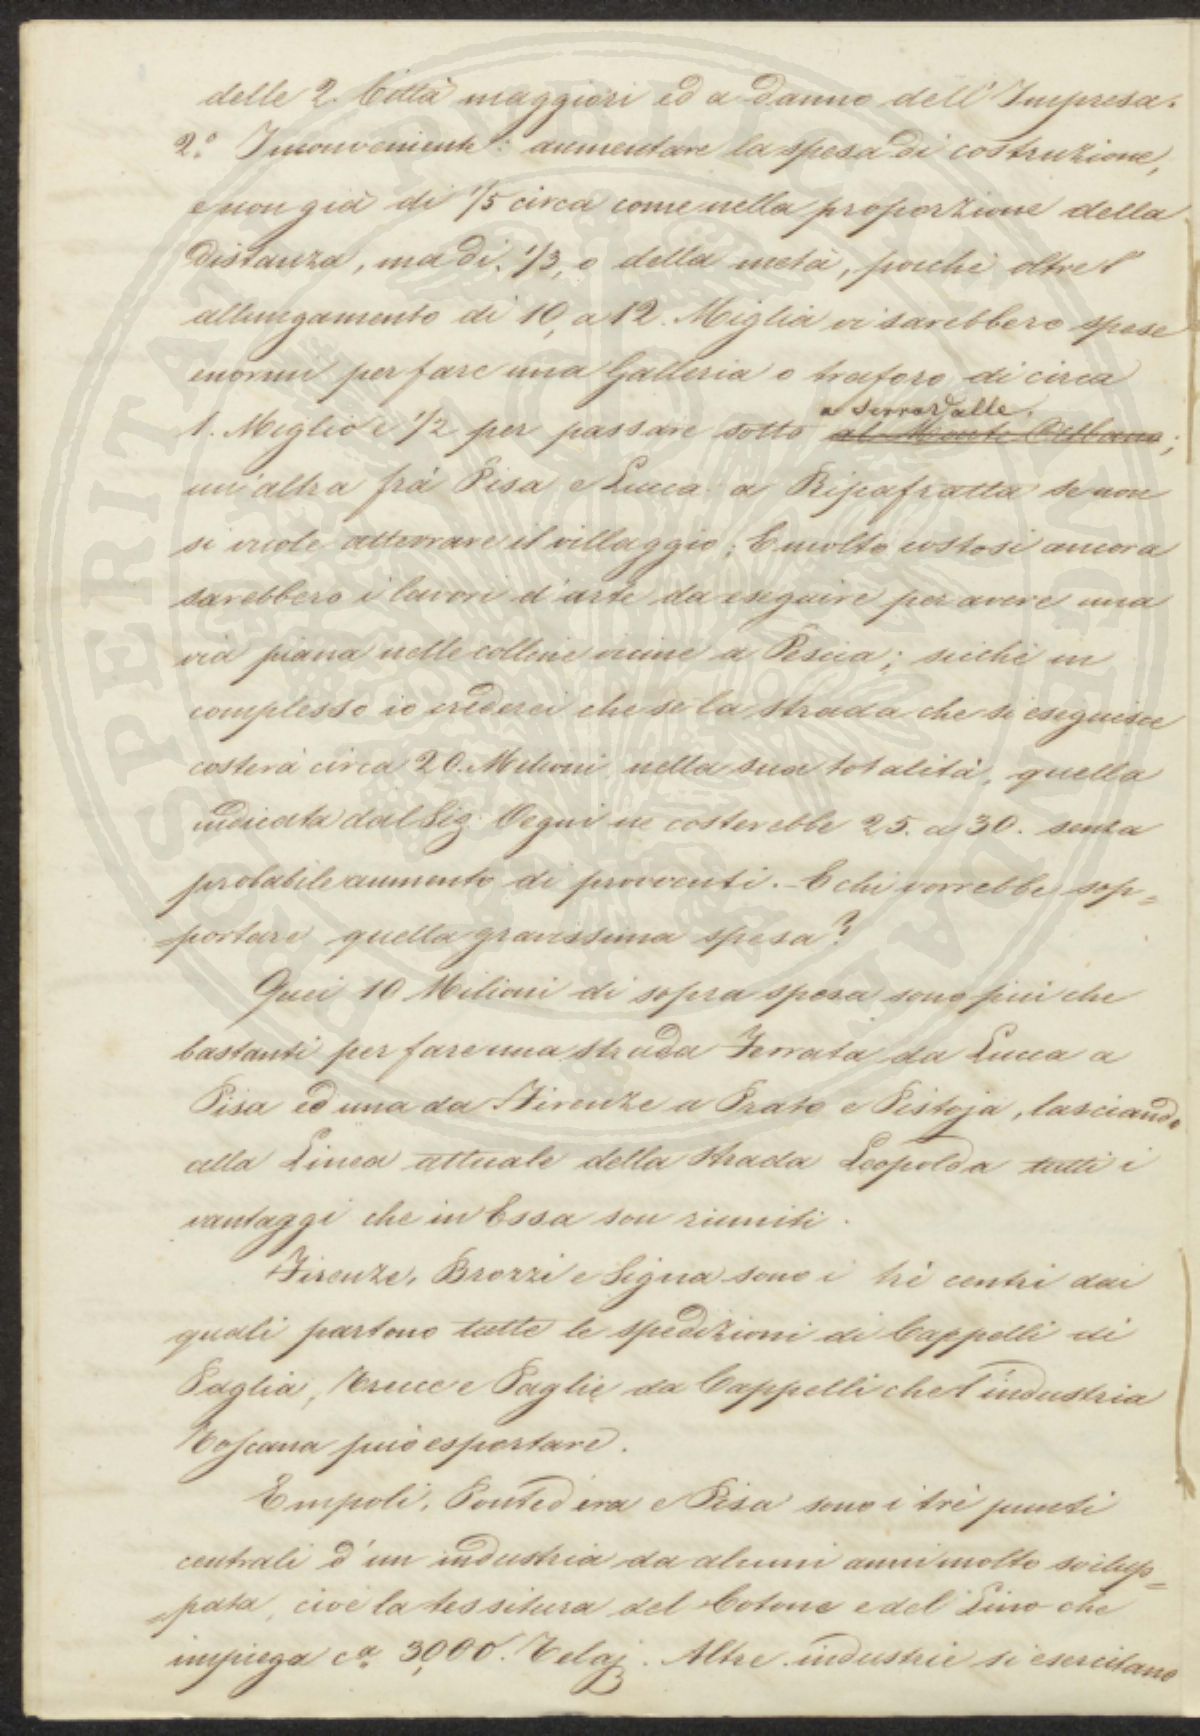 delle 2. Città maggiori ed a danno dell'Impresa.
2.° Inconveniente: aumentare la spesa di costruzione,
e non già di 1/5 circa come nella proporzione della
distanza, ma di 1/3, o della metà, poichè oltre l'
allungamento di 10, a 12. Miglia vi sarebbero spese
enormi per fare una Galleria o traforo di circa
1. Miglio e 1/2 per passare sotto al Monte Albano;
a Serravalle.
un'altra frà Pisa e Lucca a Ripafratta se non
si vuole atterrare il villaggio; E molto costosi ancora
sarebbero i lavori d'arte da eseguire per avere una
via piana nelle colline vicine a Pescia; sicchè in
complesso io crederei che se la strada che si eseguisce
costerà circa 20. Milioni nella sua totalità, quella
indicata dal Sig: Vegni ne costerebbe 25. a 30. senza
probabile aumento di provventi. - E chi vorrebbe sop=
=portare quella gravissima spesa?
Quei 10 Milioni di sopra spesa sono più che
bastanti per fare una strada Ferrata da Lucca a
Pisa ed una da Firenze a Prato e Pistoja, lasciando
alla Linea attuale della strada Leopolda tutti i
vantaggi che in Essa son riuniti.
Firenze, Brozzi e Signa sono i trè centri dai
quali partono tutte le spedizioni di Cappelli di
Paglia, Trecce e Paglie da Cappelli che l'industria
Toscana può esportare.
Empoli, Pontedera e Pisa sono i trè punti
centrali d'un industria da alcuni anni molto svilup=
=pata, cioè la tessitura del Cotone e del Lino che
impiega c.a 3,000. Telaj. Altre industrie si esercitano
PROSPERITATI PUBLICAE AUGENDAE